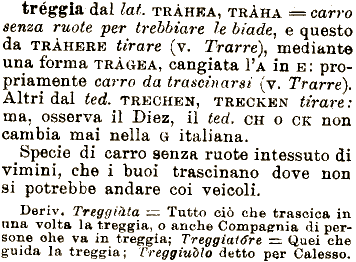 tréggia dal lat. TRÀHEA, TRÀHA = carro
senza ruote per trebbiare le biade, e questo
da TRÀHERE tirare (v. Trarre), mediante
una forma TRÀGEA, cangiata l'A in E: pro-
priamente carro da trascinarsi (v. Trarre).
Altri dal ted. TRECHEN, TRECKEN tirare:
ma, osserva il Diez, il ted. CH o CK non
cambia mai nella G italiana.
Specie di carro senza ruote intessuto di
vimini, che i buoi trascinano dove non
si potrebbe andare coi veicoli.
Deriv. Treggiàta = Tutto ciò che trascica in
una volta la treggia, o anche Compagnia di per-
sone che va in treggia; Treggiatóre = Quei che
guida la treggia; Treggiuòlo detto per Calesso.